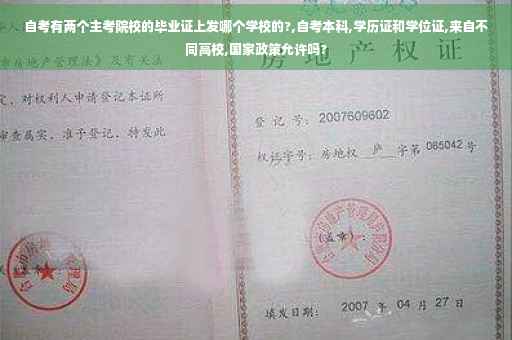 自考有两个主考院校的毕业证上发哪个学校的?,自考本科,学历证和学位证,来自不
同高校,国家政策允许吗?
房地产管理法》及有关法
定，对权利人申请登记本证所
审查属实，准予登记，特发此
产权证
登 记 号: 2007609602
权证字号: 房地权 庐 字第 065042 号
(盖章):
填发日期: 2007 年 04 月 27 日